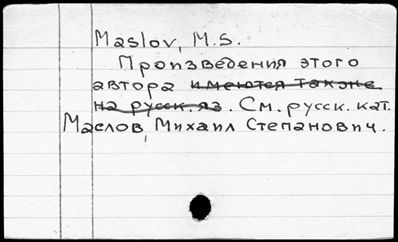 Maslov, M.S.
Произведения этого
автора имеются также
на русск. яз. См. русск. кат.
Маслов, Михаил Степанович.